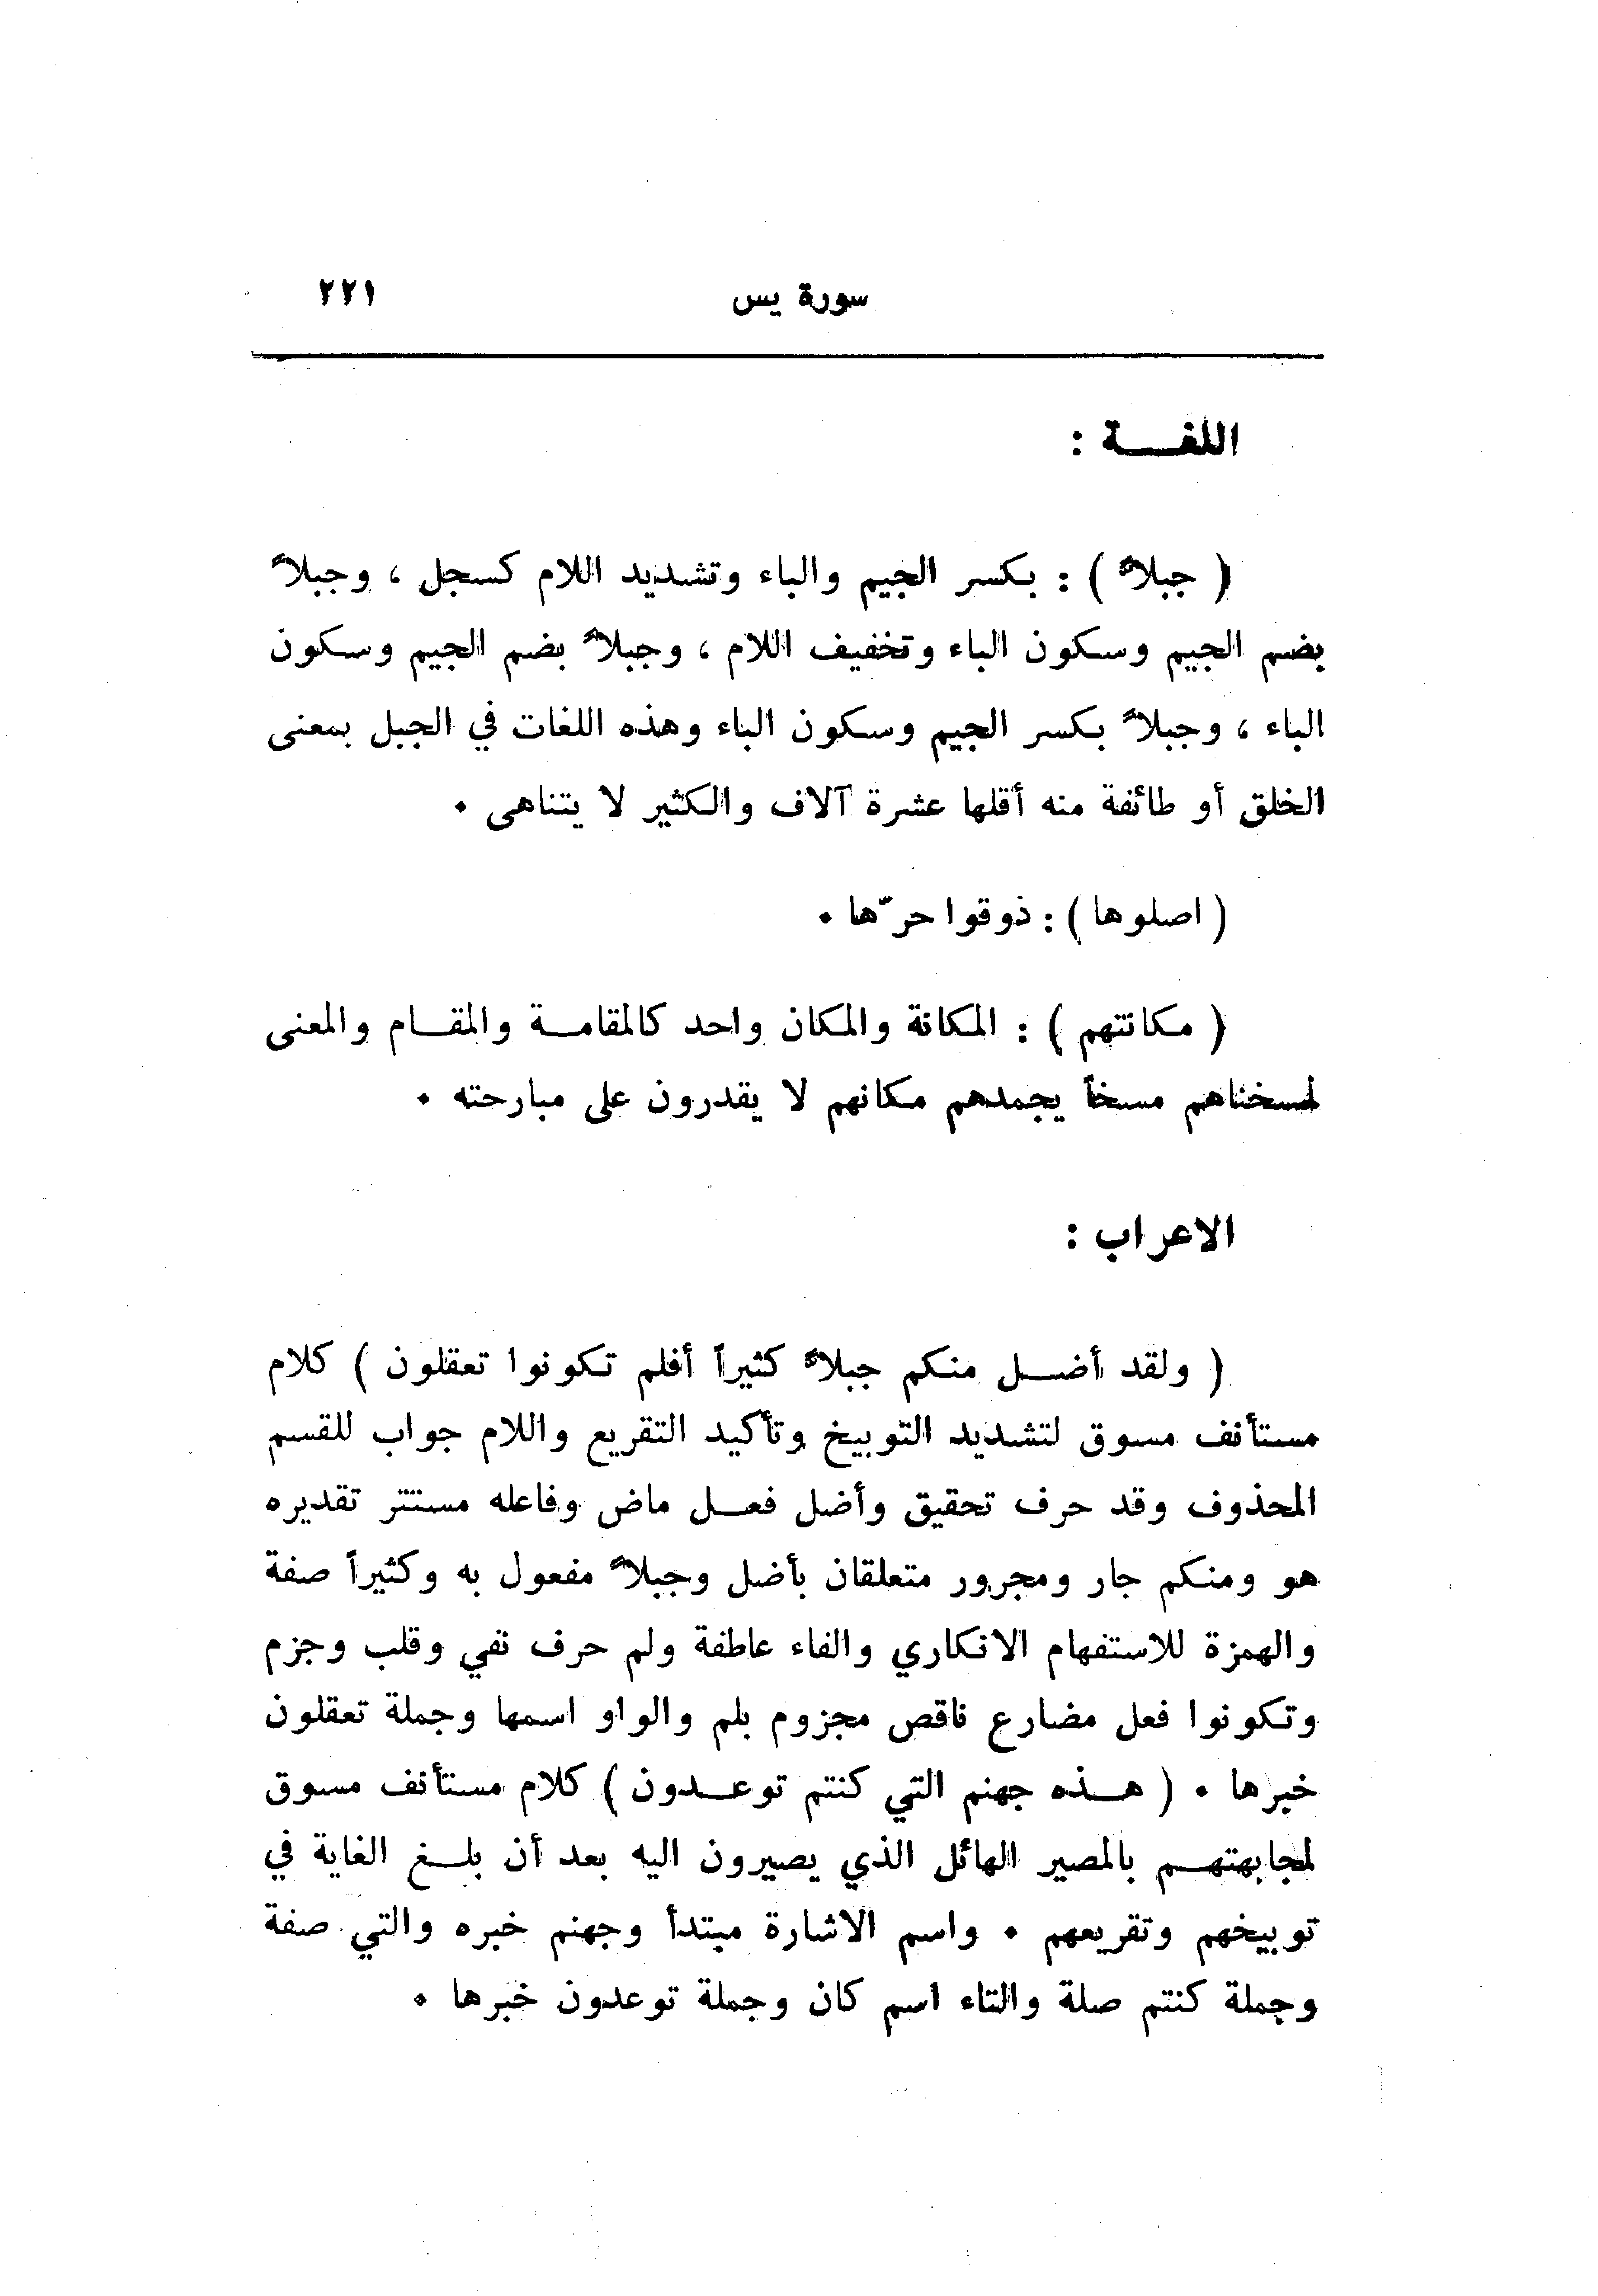 سورة يس ٢٢١
اللغـــة :
( جبلاً ) : بكسر الجيم والباء وتشديد اللام كسجل ، وجبلاً
بضم الجيم وسكون الباء وتخفيف اللام ، وجبلاً بضم الجيم وسكون
الباء ، وجبلاً بكسر الجيم وسكون الباء وهذه اللغات في الجبل بمعنى
الخلق أو طائفة منه أقلها عشرة آلاف والكثير لا يتناهى .
( اصلوها ) : ذوقوا حرّها .
( مكانتهم ) : المكانة والمكان واحد كالمقامـة والمقـام والمعنى
لمسخناهم مسخاً يجمدهم مكانهم لا يقدرون على مبارحته .
الاعراب :
( ولقد أضـل منكم جبلاً كثيراً أفلم تكونوا تعقلون ) كلام
مستأنف مسوق لتشديد التوبيخ وتأكيد التقريع واللام جواب للقسم
المحذوف وقد حرف تحقيق وأضل فعـل ماض وفاعله مستتر تقديره
هو ومنكم جار ومجرور متعلقان بأضل وجبلاً مفعول به وكثيراً صفة
والهمزة للاستفهام الانكاري والفاء عاطفة ولم حرف نفي وقلب وجزم
وتكونوا فعل مضارع ناقص مجزوم بلم والواو اسمها وجملة تعقلون
خبرها . ( هـذه جهنم التي كنتم توعـدون ) كلام مستأنف مسوق
لمجابهتهـم بالمصير الهائل الذي يصيرون اليه بعد أن بلـغ الغاية في
توبيخهم وتقريعهم . واسم الاشارة مبتدأ وجهنم خبره والتي صفة
وجملة كنتم صلة والتاء اسم كان وجملة توعدون خبرها .